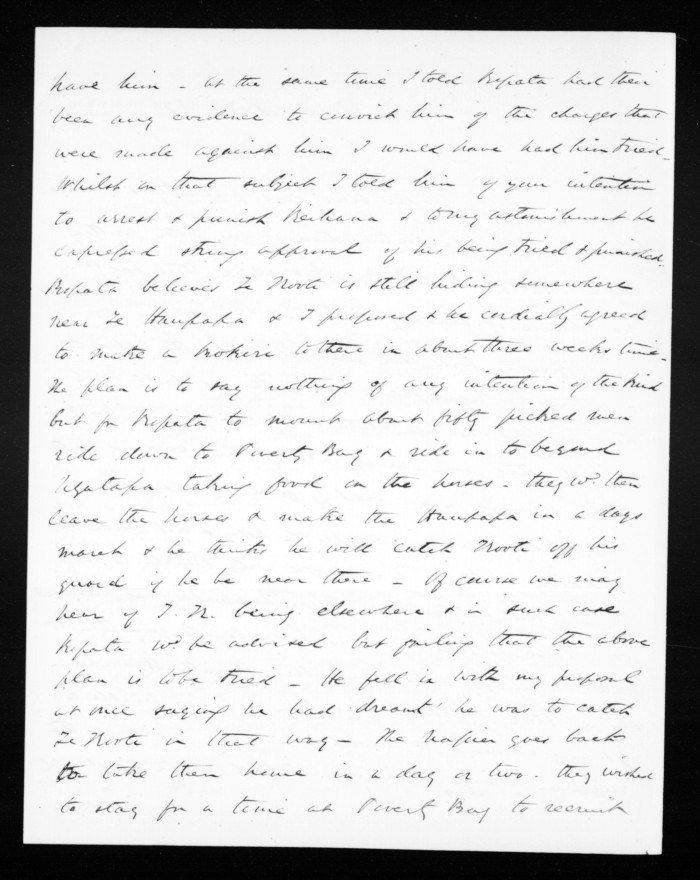 have him - at the same time I told Ropata had there
been any evidence to convict him of the charges that
were made against him I would have had him tried -
Whilst on that subject I told him of your intention
to arrest & punish Keihana & to my astonishment he
expressed strong approval of his being tried & punished.
Ropata believes Te Kooti is still hiding somewhere
near Te Haupapa & I proposed & he cordially agreed
to make a kokiri to there in about three weeks time -
The plan is to say nothing of any intention of the kind
but for Ropata to mount about fifty picked men
ride down to Poverty Bay & ride in to beyond
Ngatapa taking food on the horses - they wd. then
leave the horses & make the Haupapa in a days
march & he thinks he will catch Kooti off his
guard if he be near there - Of course we may
hear of T.K. being elsewhere & in such case
Ropata wd. be advised but failing that the above
plan is to be tried - He fell in with my proposal
at once saying he had dreamt he was to catch
Te Kooti in that way - The Napier goes back
to take them home in a day or two. they wished
to stay for a time at Poverty Bay to recruit